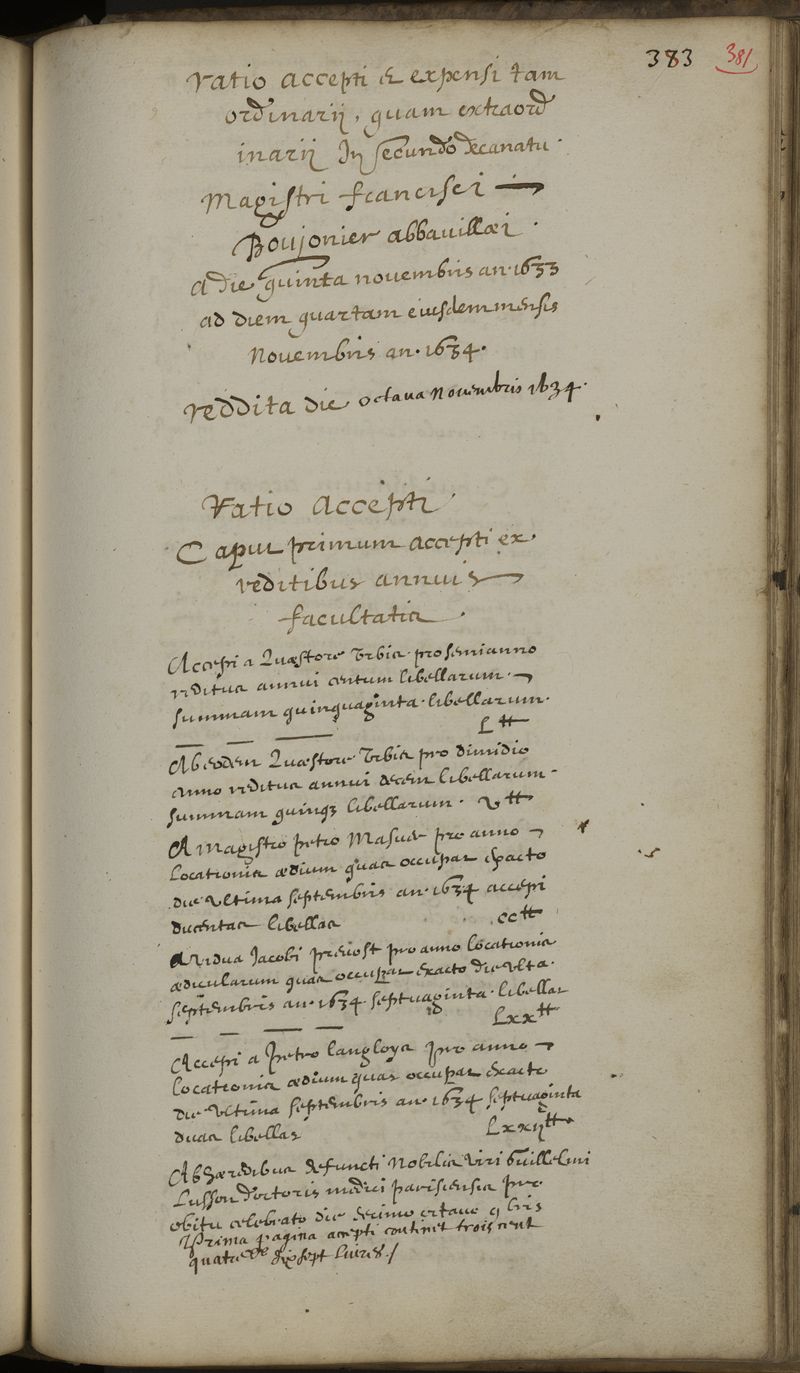 383 381
ratio accepti & expensi tam
ordinarij, quam extraord
inarij In secundo decanatu
Magistri francisci
Boujonier abbavillæi
A die quinta novembris an. 1633
ad diem quartam eiusdem mensis
Novembris an. 1634.
reddita die octaua Nouembris 1634.
Ratio Accepti
Caput primum accepti ex
reditibus annuis
facultatis
Accepi a Quæstore Vrbis pro semianno
reditus annui centum libellarum
summam quinquaginta libellarum.
L ♯
Ab eodem Quæstore Vrbis pro dimidio
anno reditus annui decem libellarum
summam quinq3 libellarum. v ♯
A magistro petro Masue pro anno
locationis ædium quas occupat exacto
die vltima septembris an. 1634 accepi
ducentas libellas cc ♯
A vidua Jacobi preuost pro anno locationis
ædicularum quas occupat exacto die vlta.
septembris an. 1634 septuaginta libellas
Lxx ♯
Accepi a Petro langloys pro anno
locationis ædium quas occupat exacto
die vltima septembris an. 1634 septuaginta
duas libellas Lxxij ♯
Ab hæredibus defuncti Nobilis viri Guillelmi
Lusson doctoris medici parisiensis pro
obitu celebrato die decimo octauo 9bris
Prima pagina accepti continet trois cent
quatre vt dix sept liures./